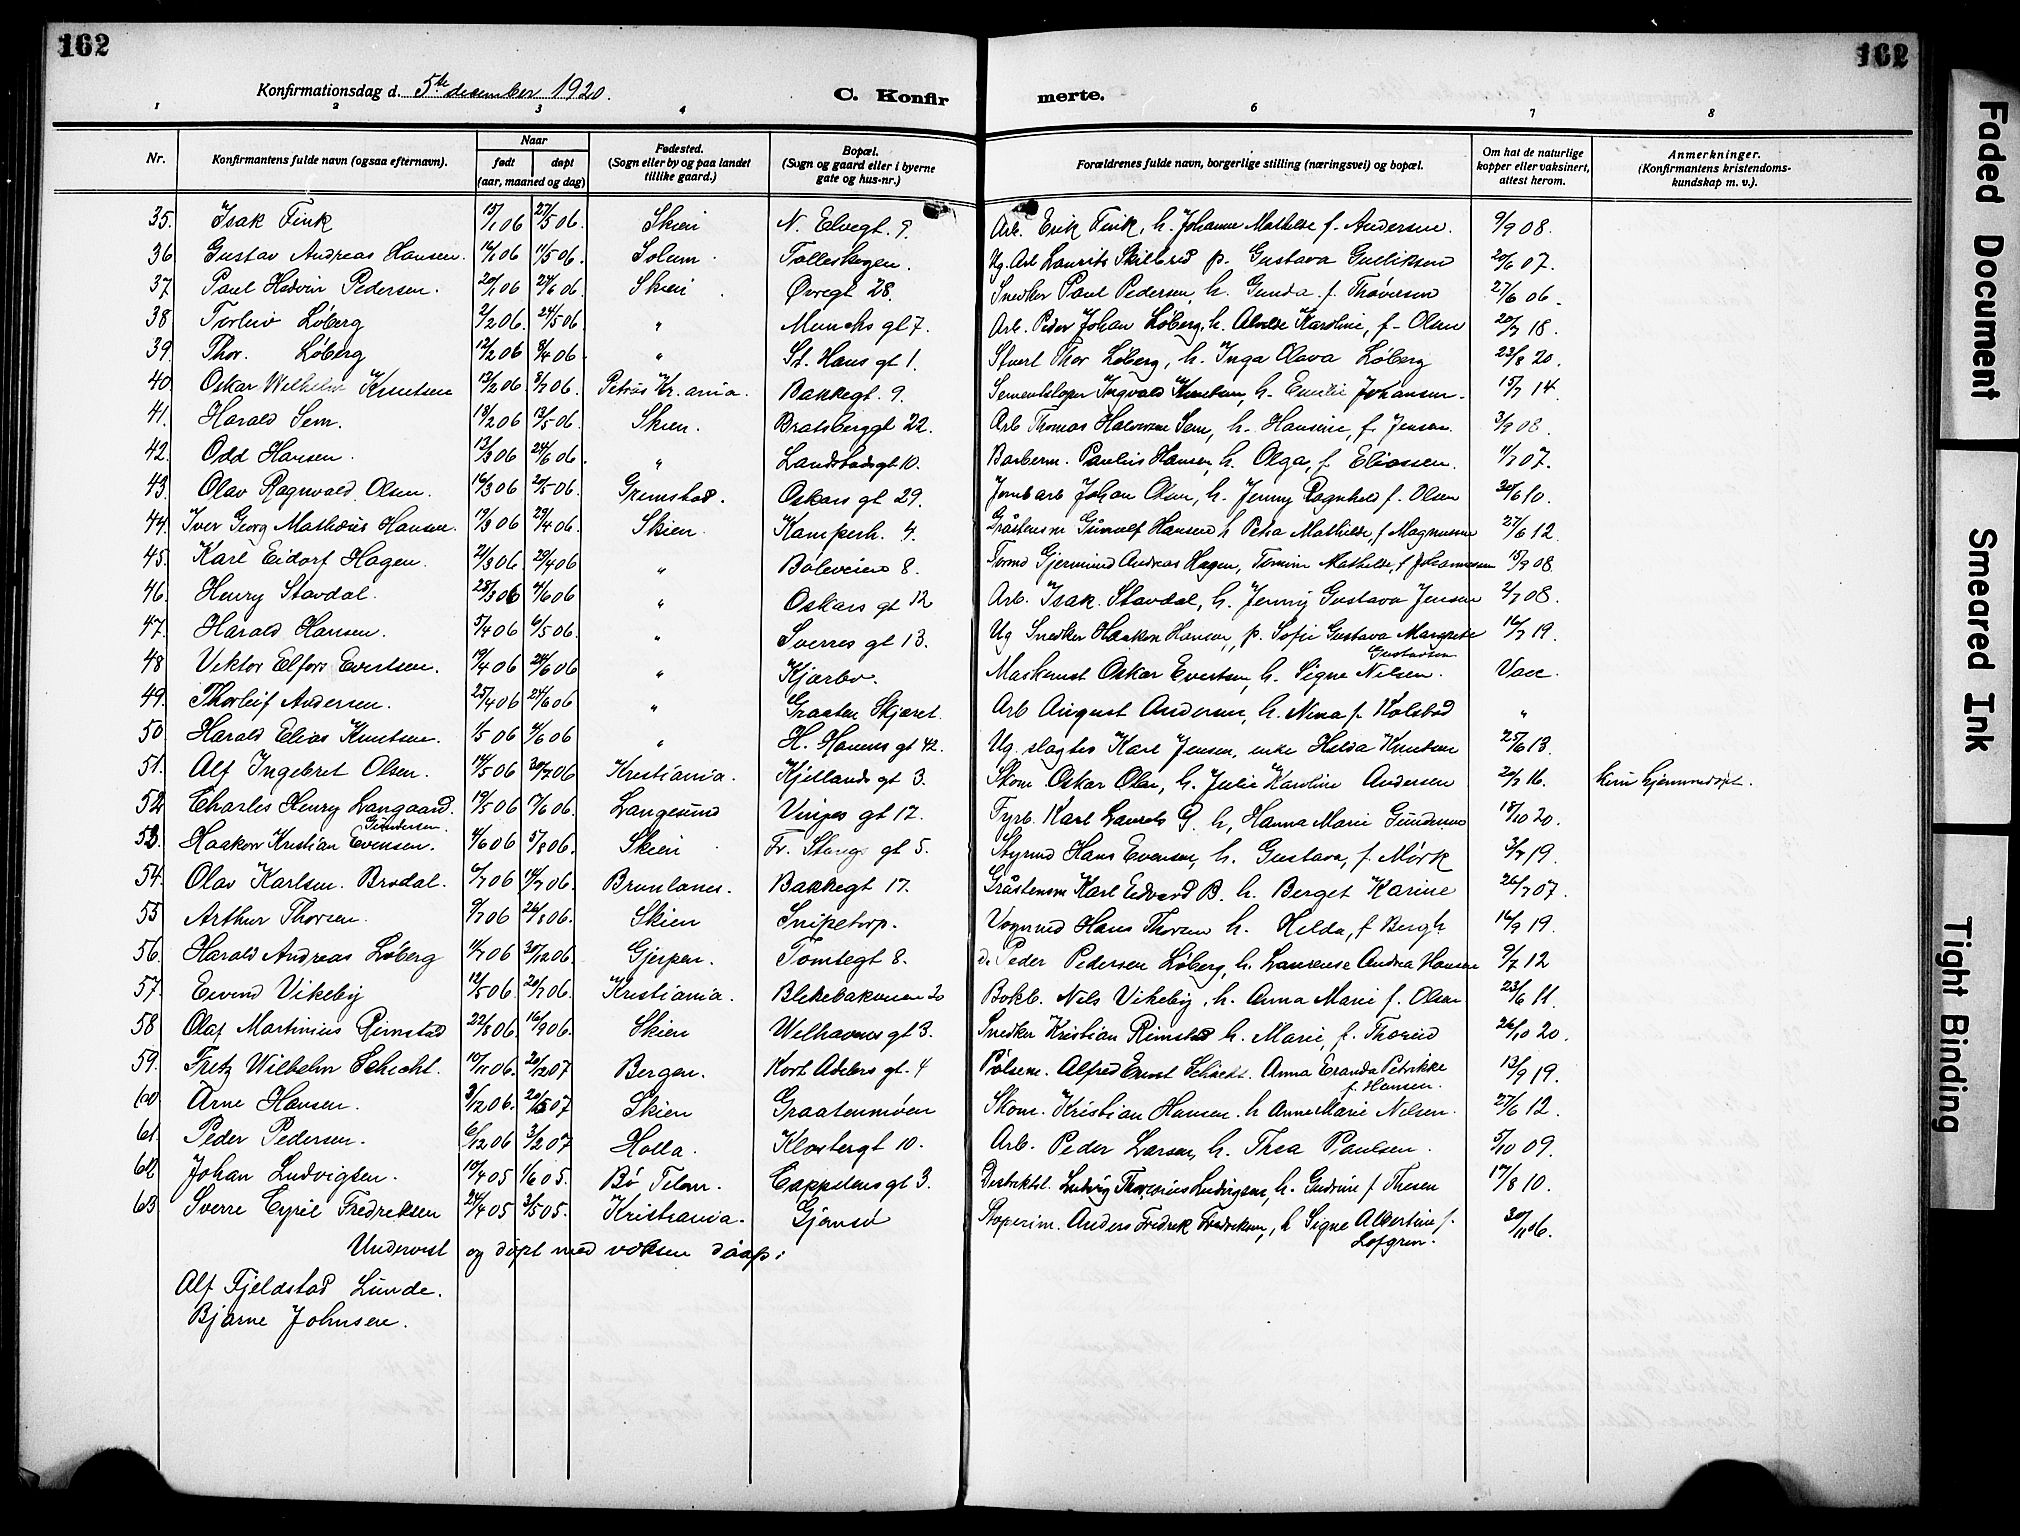 162
162
Konfirmationsdag d. 5te desember 1920.
C. Konfir merte.
1 2 3 4 5 6 7 8
Nr. Konfirmantens fulde navn (ogsaa efternavn). Naar født døpt (aar, maaned og dag) Fødested. (Sogn eller by og paa landet tillike gaard.) Bopæl. (Sogn og gaard eller i byerne gate og hus-nr.) Forældrenes fulde navn, borgerlige stilling (næringsvei) og bopæl. Om hat de naturlige kopper eller vaksinert, attest herom. Anmerkninger. (Konfirmantens kristendoms-kundskap m. v.).
35. Isak Fink 15/1 06 27/5 06. Skien N. Elvegt. 9. Arb. Erik Fink, h. Johanne Mathilde f. Andersen. 9/9 08.
36 Gustav Andreas Hansen. 16/1 06 11/5 06. Solum. Follestagen. Ug. Arb Laurits Skilbred p. Gustava Gulliksen 20/6 07.
37. Paul Hedvin Pedersen. 20/1 06 24/6 06. Skien Øvregt 28. Snedker Paul Pedersen, h. Gunda f. Thovsen 27/6 06.
38 Torleiv Løberg 2/2 06. 24/5 06 " Munchs gt 7. Arb. Peder Johan Løberg, h. Alvilde Karoline, f. Olsen 20/7 18.
39. Thor. Løberg 12/2 06 8/4 06. " St. Hans gt 1. Stuert Thor Løberg, h. Inga Olava Løberg 23/8 20.
40. Oskar Wilhelm Knutsen 13/2 06. 8/7 06. Petrus Kr.ania. Bakkegt. 9. Sementstøper Ingvald Knutsen, h. Emilie Johansen. 15/7 14.
41. Harald Sem. 18/2 06 13/5 06. Skien. Bratsberggt 22. Arb Thomas Halvorsen Sem, h. Hansine, f. Jensen. 3/9 08.
42. Odd Hansen. 13/3 06 24/6 06. " Landstadsgt 10. Barberm. Paulus Hansen, h. Olga, f Eliassen. 11/7 07.
43. Olav Ragnvald Olsen. 16/3 06 20/5 06. Grimstad. Oskars gt 29. Jernb arb Johan Olsen, h. Jenny Ragnhild f. Olsen 30/6 10.
44. Iver Georg Mathæus Hansen. 17/3 06 23/4 06. Skien. Kamperh. 4. Gråstensm Gunvalf Hansen h Petra Mathilde, f Magnussen 27/6 12.
45. Karl Eidorf Hagen. 21/3 06 29/4 06 " Boleveien 8. Formd Gjermund Andreas Hagen, Tomine Mathilde, f Johannesen 15/9 08
46. Henry Stavdal. 28/3 06 4/6 06 " Oskars gt 12 Arb. Isak. Stavdal, h. Jenny Gustava Jensen 2/7 08.
47. Harald Hansen. 5/4 06 6/5 06. " Sverres gt 13. Ug Snedker Haakon Hansen, p. Sofie Gustava Margrete Gustavsen 16/7 19.
48 Viktor Elfors Evertsen. 19/4 06 24/6 06 " Kjærbo. Maskinist Oskar Evertsen, h. Signe Nilsen. Vacc.
49. Thorleif Andersen. 25/4 06 24/6 06 " Graaten Skjæret. Arb August Andersen, h. Nina f. Kolstad "
50 Harald Elias Knutsen. 1/5 06 4/6 06 " H. Hansens gt 42. Ug. slagter Karl Jensen, enke Helda Knutsen 25/6 13.
51. Alf Ingebret Olsen. 14/5 06 30/7 06 Kristiania. Kjellands gt 3. Skom Oskar Olsen, h. Julie Karoline Andersen 20/7 16. kun hjemmedøpt.
52 Charles Henry Langaard Gundersen. 19/5 06 17/6 06. Langesund Vinjes gt 12. Fyrb. Karl Laurits G. h. Hanna Marie Gundersen 18/10 20.
53. Haakon Kristian Evensen. 4/6 06 5/8 06. Skien Fr. Stangs gt 5. Styrmd Hans Evensen, h. Gustava, f. Mørk 3/7 19.
54. Olav Karlsen. Brodal. 6/7 06 14/7 06. Brunlanes. Bakkegt 17. Gråstensm Karl Edvard B. h. Berget Karine 26/7 07.
55 Arthur Thorsen. 9/7 06 26/8 06. Skien Snipetorp. Vognmd Hans Thorsen h. Helda, f Bergh 16/9 19.
56. Harald Andreas Løberg 11/7 06 30/12 06. Gjerpen. Tomtegt 8. d. Peder Pedersen Løberg, h. Laurense Andrea Hansen 9/7 12
57. Eivind Vikeby 12/5 06. 20/7 06. Kristiania. Blekebakveien 20 Bokb. Nils Vikeby, h. Anna Marie f. Olsen 23/6 11.
58 Olaf Martinius Rimstad 22/8 06. 16/9 06. Skien Welhavens gt 3. Snedker Kristian Rimstad h. Marie, f. Thorud 26/10 20.
59. Fritz Wilhelm Schicht. 10/11 06. 20/12 07 Bergen. Kort Adelers gt. 4 Pølsem. Alfred Ernst Schicht. Anna Eranda Petrikke f. Hansen. 13/9 19.
60 Arne Hansen. 3/12 06. 20/5 07 Skien Graatenmoen Skom. Kristian Hansen. h Anne Marie Nilsen. 27/6 12.
61. Peder Pedersen. 6/12 06 3/2 07 Holla. Klostergt 10. Arb. Peder Larsen, h. Thea Paulsen. 5/10 09.
62 Johan Ludvigsen. 10/4 05 1/6 05. Bø Telem. Cappelens gt 3. Distriktsl. Ludvig Thorvinius Ludvigsen, h. Gudrine f Thesen 17/8 10.
63 Sverre Cyril Fredriksen 24/4 05 3/5 05. Kristiania. Gjemsø Støperim. Anders Fredrik Fredriksen, h Signe Albertine f. Lofgren. 30/11 06.
Undervist og døpt med voksen daap:
Alf Fjeldstad Lunde.
Bjarne Johnsen.
Faded Document
Smeared Ink
Tight Binding